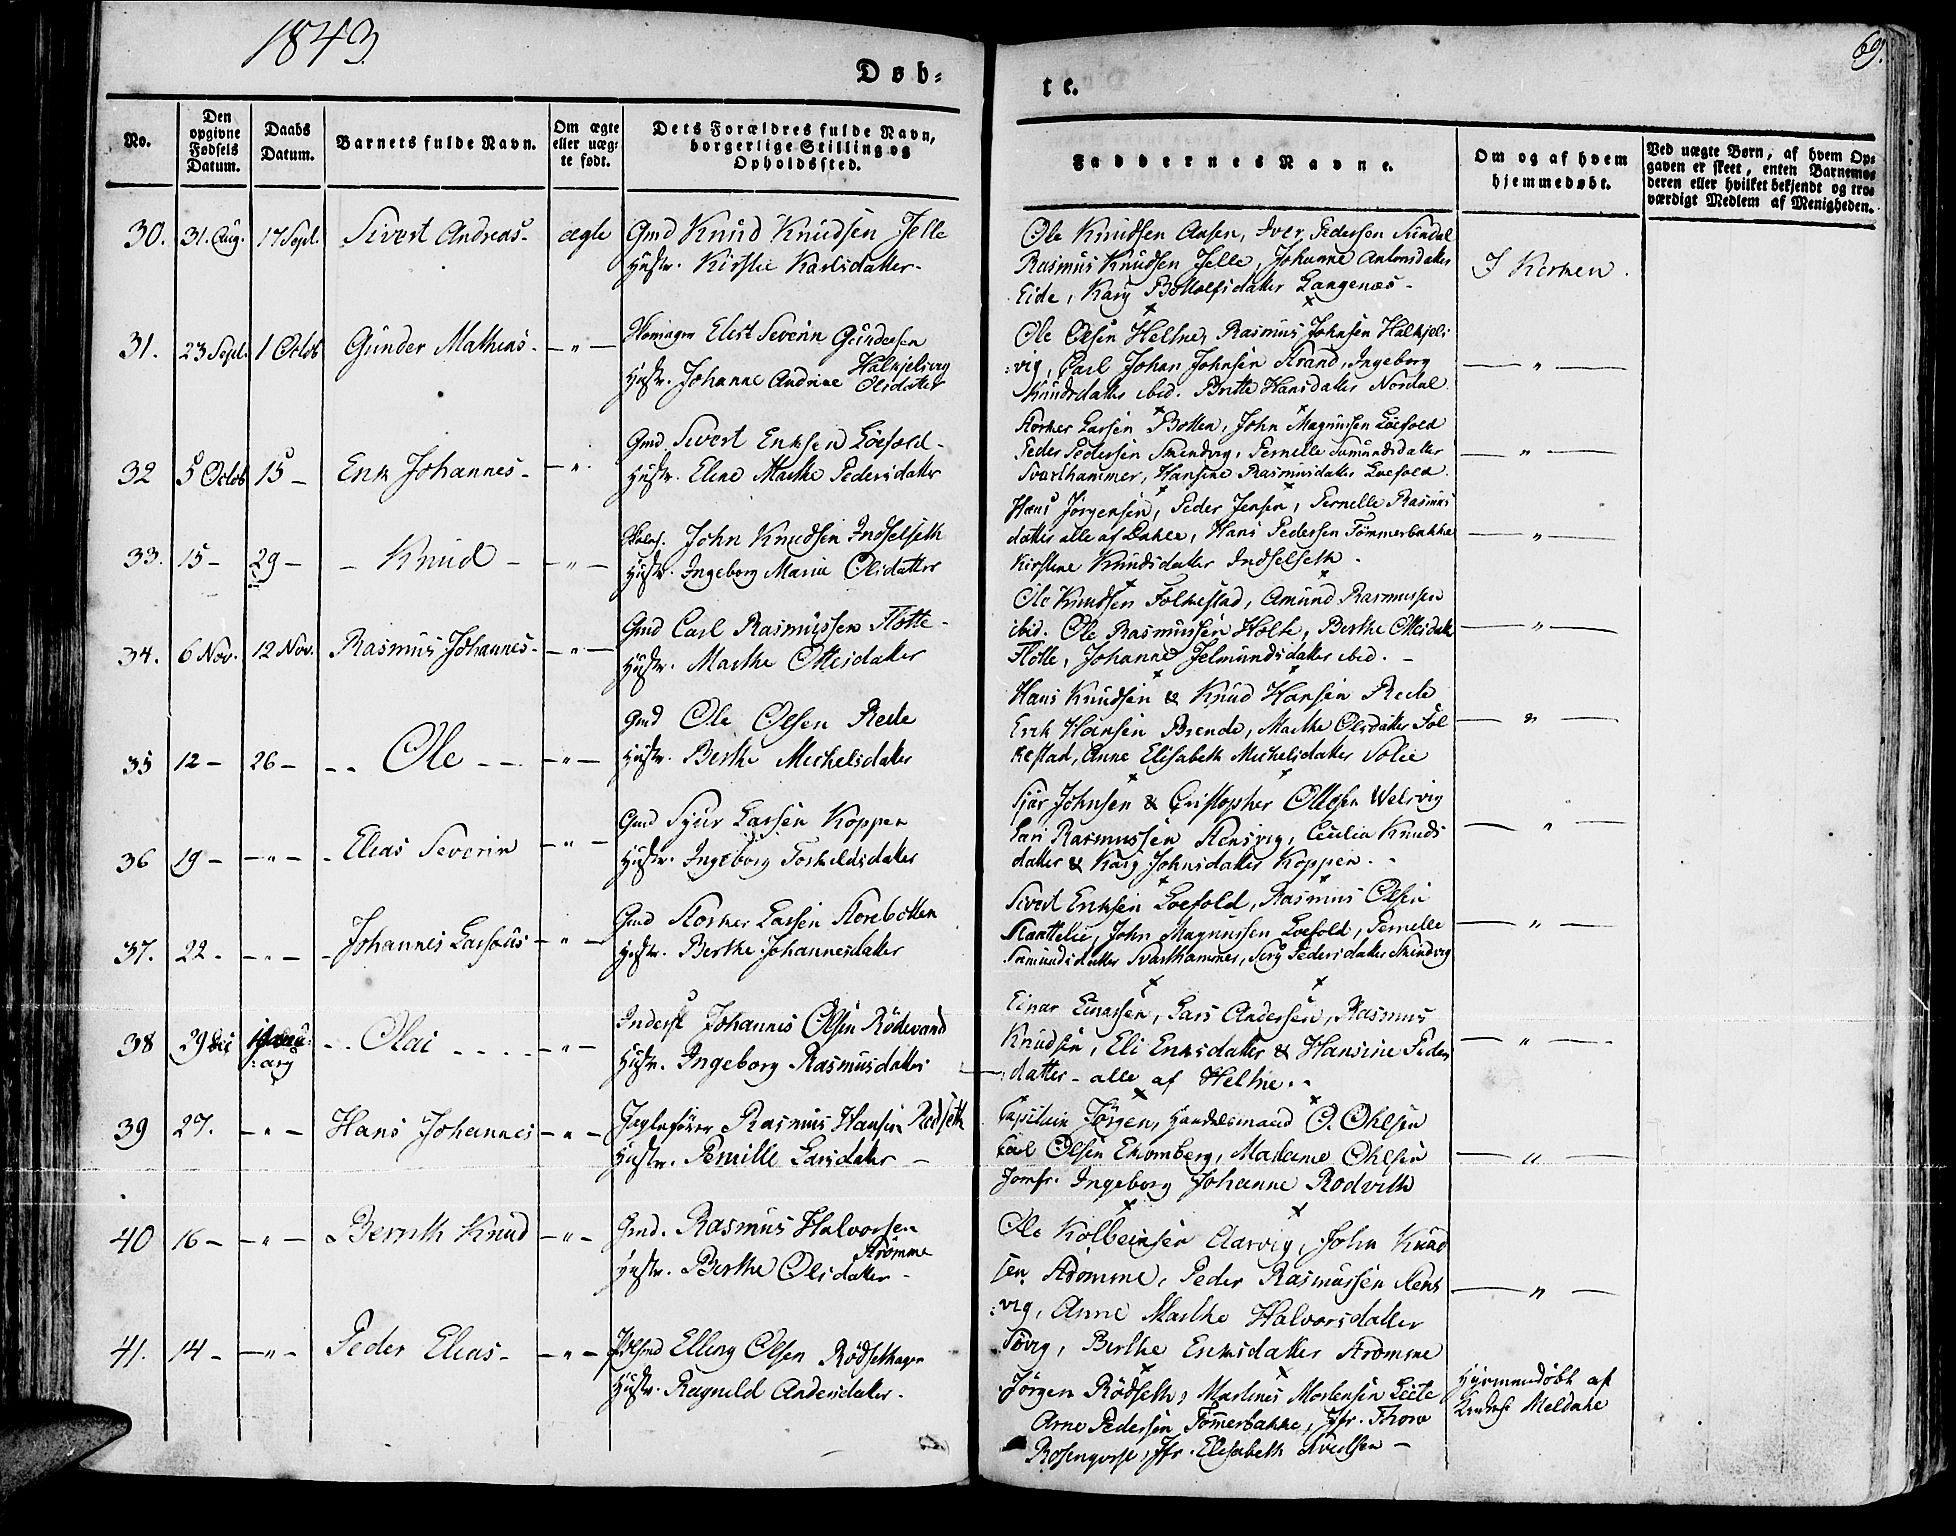 1843.
Døb-
te.
69.
No.
Den opgivne Fødsels Datum.
Daabs Datum.
Barnets fulde Navn.
Om ægte eller uæg-te født.
Dets Forældres fulde Navn, borgerlige Stilling og Opholdssted.
Faddernes Navne.
Om og af hvem hjemmedøbt.
Ved uægte Børn, af hvem Op-gaven er skeet, enten Barnemo-deren eller hvilket bekjendt og tro-værdigt Medlem af Menigheden.
30. 31. Aug. 17 Sept. Sivert Andreas- ægte Gmd Knud Knudsen Jelle
Hustr. Kirstie Karlsdatter-
Ole Knudsen Aasen, Iver Pedersen Sundal
Rasmus Knudsen Jelle, Johanne Antonsdatter
Eide, Kary Bottolfsdatter Langenæs-
I Kirken.
31. 23 Sept. 1 Octob Gunder Mathias- -"- Elest Severin Gundersen
Halkjelsvig
Hustr. Johanne Andrine Olsdatter
Ole Olsen Heltne, Rasmus Johnsen Halkjels
:vig, Carl Johan Johnsen Strand, Ingeborg
Knudsdatter ibid. Britte Hansdatter Nordal.
-"-
32 5 Octob 15- Erik Johannes- -"- Gmd Sivert Eriksen Loefold-
Hustr. Eline Marthe Pedersdatter
Storker Larsen Botten, John Magnussen Loefold
Peder Pedersen Skindvig, Pernelle Samundsdatter
Svarthammer, Hansine Rasmusdatter Loefold.
-"-
33. 15- 29- - Knud - -"- John Knudsen Indselseth
Hustr. Ingeborg Marie Olsdatter
Hans Jørgensen, Peder Jensen, Pernelle Rasmus
datter alle af Bakke, Hans Pedersen Tømmerbakke
Kirstine Knudsdatter Indselseth.
-"-
34. 6 Nov. 12 Nov. Rasmus Johannes- -"- Gmd Carl Rasmussen Flotte-
Hustr. Marthe Ottesdatter
Ole Knudsen Folkestad, Amund Rasmussen
ibid. Ole Rasmussen Holte, Berthe Ottesdatter
Flotte, Johanne Jelmundsdatter ibid.-
-"-
35 12- 26- -- Ole -- -"- Gmd Ole Olsen Rede
Hustr. Berthe Michelsdatter
Hans Knudsen & Knud Hansen Rede
Erik Hansen Brende, Marthe Olsdatter Fol
kestad, Anne Elisabeth Michelsdatter Solie
-"-
36 19- -"- - Elias Severin -"- Gmd Syur Larsen Koppen
Hustr. Ingeborg Torkildsdatter
Johnsen & Cristopher Ollesen Welsvig
Rasmussen Stensvig, Cecilia Knuds
datter & Kary Johnsdatter Koppen.-
-"-
37. 22- -"- - Johannes Lassæus- -"- Gmd Storker Larsen Storebotten
Hustr. Berthe Johannesdatter
Sivert Eriksen Loefold, Rasmus Olsen
John Magnussen Loefold, Pernelle
Samundsdatter Svarthammer, Siry Pedersdatter Skindvig
-"-
38 29 Dec -- Olai ---- -"- Inderst Johannes Olsen Rødevand
Hustr. Ingeborg Rasmusdatter
Einar Einarsen, Lars Andersen, Rasmus
Knudsen, Eli Eriksdatter & Hansine Peders
datter- alle af Heltne.-
-"-
39 27. -"- Hans Johannes -"- Rasmus Hansen Rødseth
Hustr. Pernille Larsdatter-
Capitain Jørgen, Handelsmand O. Ohlsen
Carl Olsen Ekornberg, Madame Ohlsen
Jomfr. Ingeborg Johanne Rodvitt
-"-
40 16- -"- Bernth Knud -"- Gmd. Rasmus Halvorsen
Strømme
Hustr. Berthe Olsdatter-
Ole Kolbeinsen Aarvig, John Knud
sen Strømme, Peder Rasmussen Stens
:vig, Anne Marthe Halvorsdatter
Berthe Eriksdatter Strømme
-"-
41. 14- -"- Peder Elias- -"- Elling Olsen Rødsethagen
Hustr. Ragnild Andersdatter.
Jørgen Rødseth, Martines Mortensen Leite
Arne Pedersen Tømerbakke, Jfr. Thore
Jfr. Elisabeth
Hjemmedøbt af
Meldahl